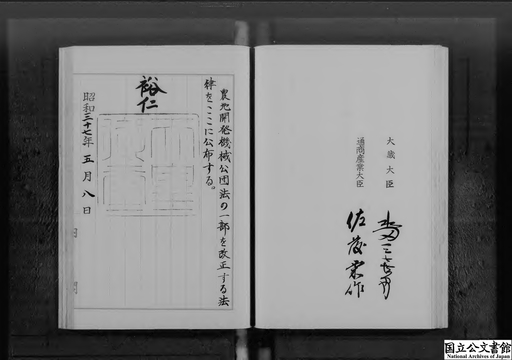 大蔵大臣
水田三喜男
通商産業大臣
佐藤栄作
農地開発機械公団法の一部を改正する法
律をここに公布する。
裕仁
昭和三十七年五月八日
国立公文書館
National Archives of Japan